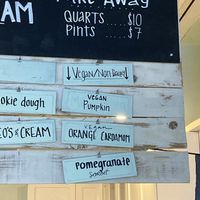 TAKE AWAY
AM
QUARTS $10
Pints $7
↓Vegan/Non Dairy↓
okie dough
VEGAN
PUMPKIN
EO'S & CREAM
VEGAN
ORANGE CARDAMOM
Pomegranate
SORBET